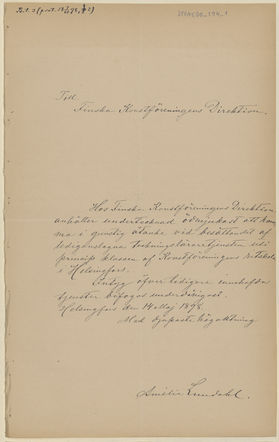 Till
Finska Konstföreningens Direktion.
Hos Finska Konstföreningens Direktion
anhåller undertecknad ödmjukast att kom-
ma i gunstig åtanke vid besättandet af
lediganslagna teckningsläraretjensten vid
klassen af Konstföreningens Ritskola
i Helsingfors.
Intyg öfver tidigare innehafda
tjenster bifogas underdånigast.
Helsingfors den 14 Maj 1898.
Med djupaste högaktning
Amélie Lundahl.